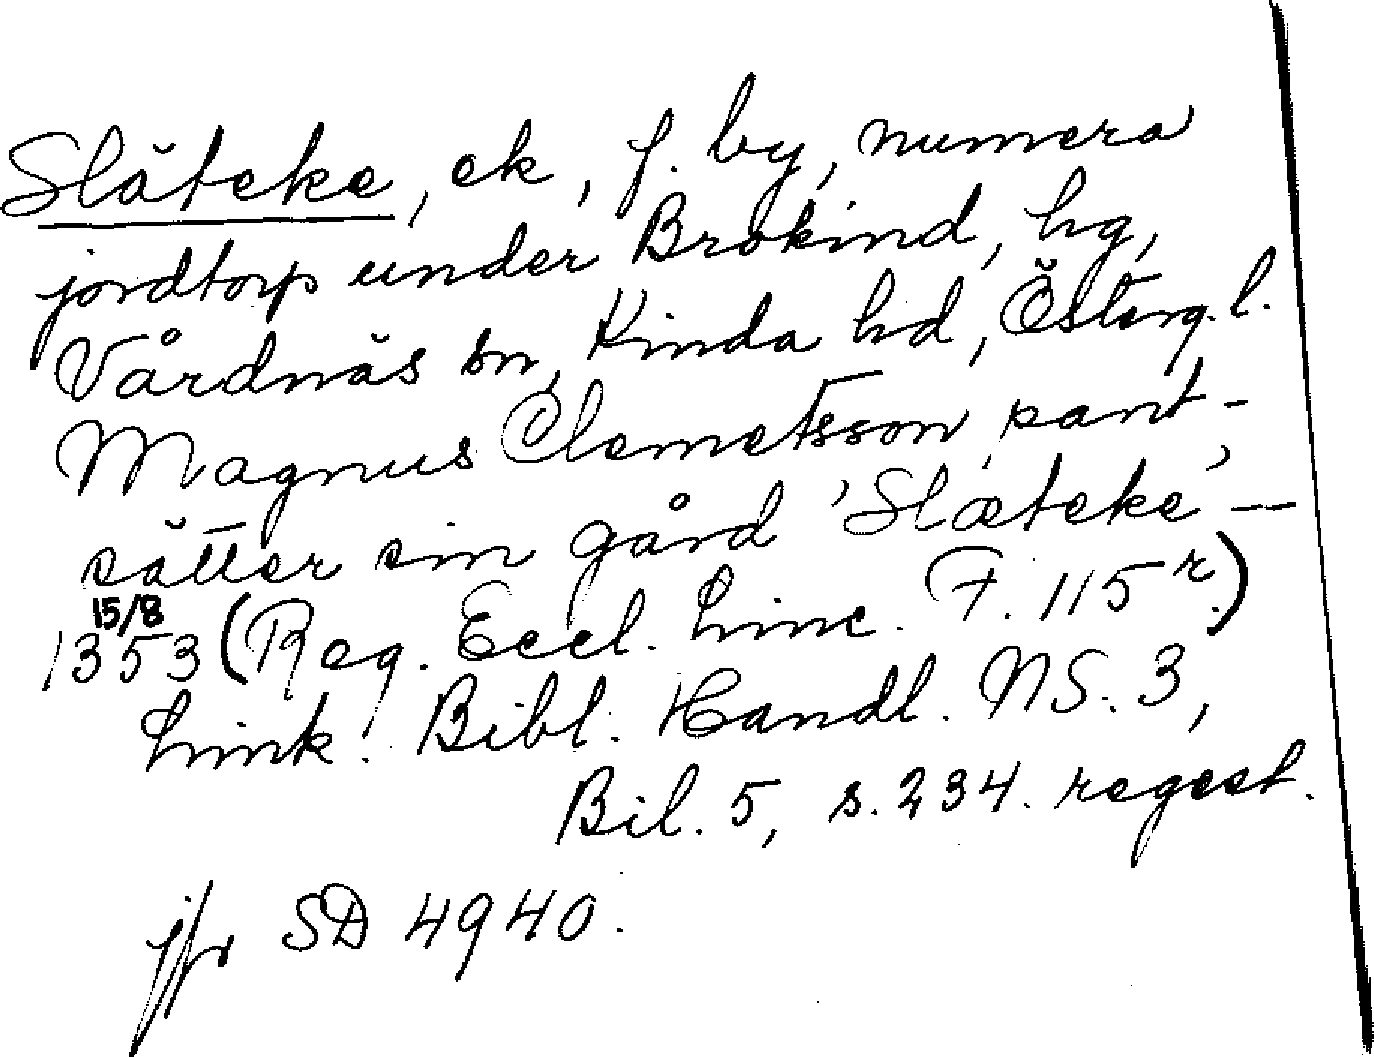 Släteke, ek, f. by, numera
jordtorp under Brokind, hg,
Vårdnäs sn, Kinda hd, Österg. l.
Magnus Clemetsson pant-
sätter sin gård 'Slæteke' —
15/8
1353 (Reg. Eccl. Linc. F. 115 r.)
Link. Bibl. Handl. NS. 3,
Bil. 5, s. 234. regest.
jfr SD 4940.